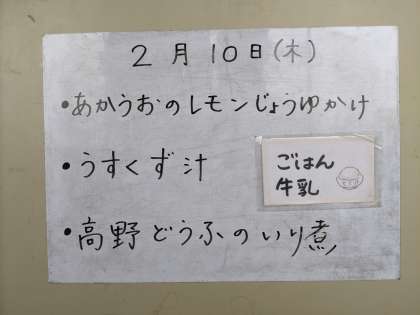 2月10日(木)
・あかうおのレモンじょうゆかけ
・うすくず汁
ごはん
牛乳
・高野どうふのいり煮